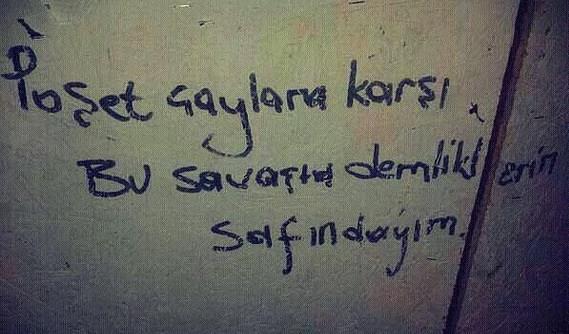 Poşet çaylara karşı
Bu savaşta demliklerin
safındayım.